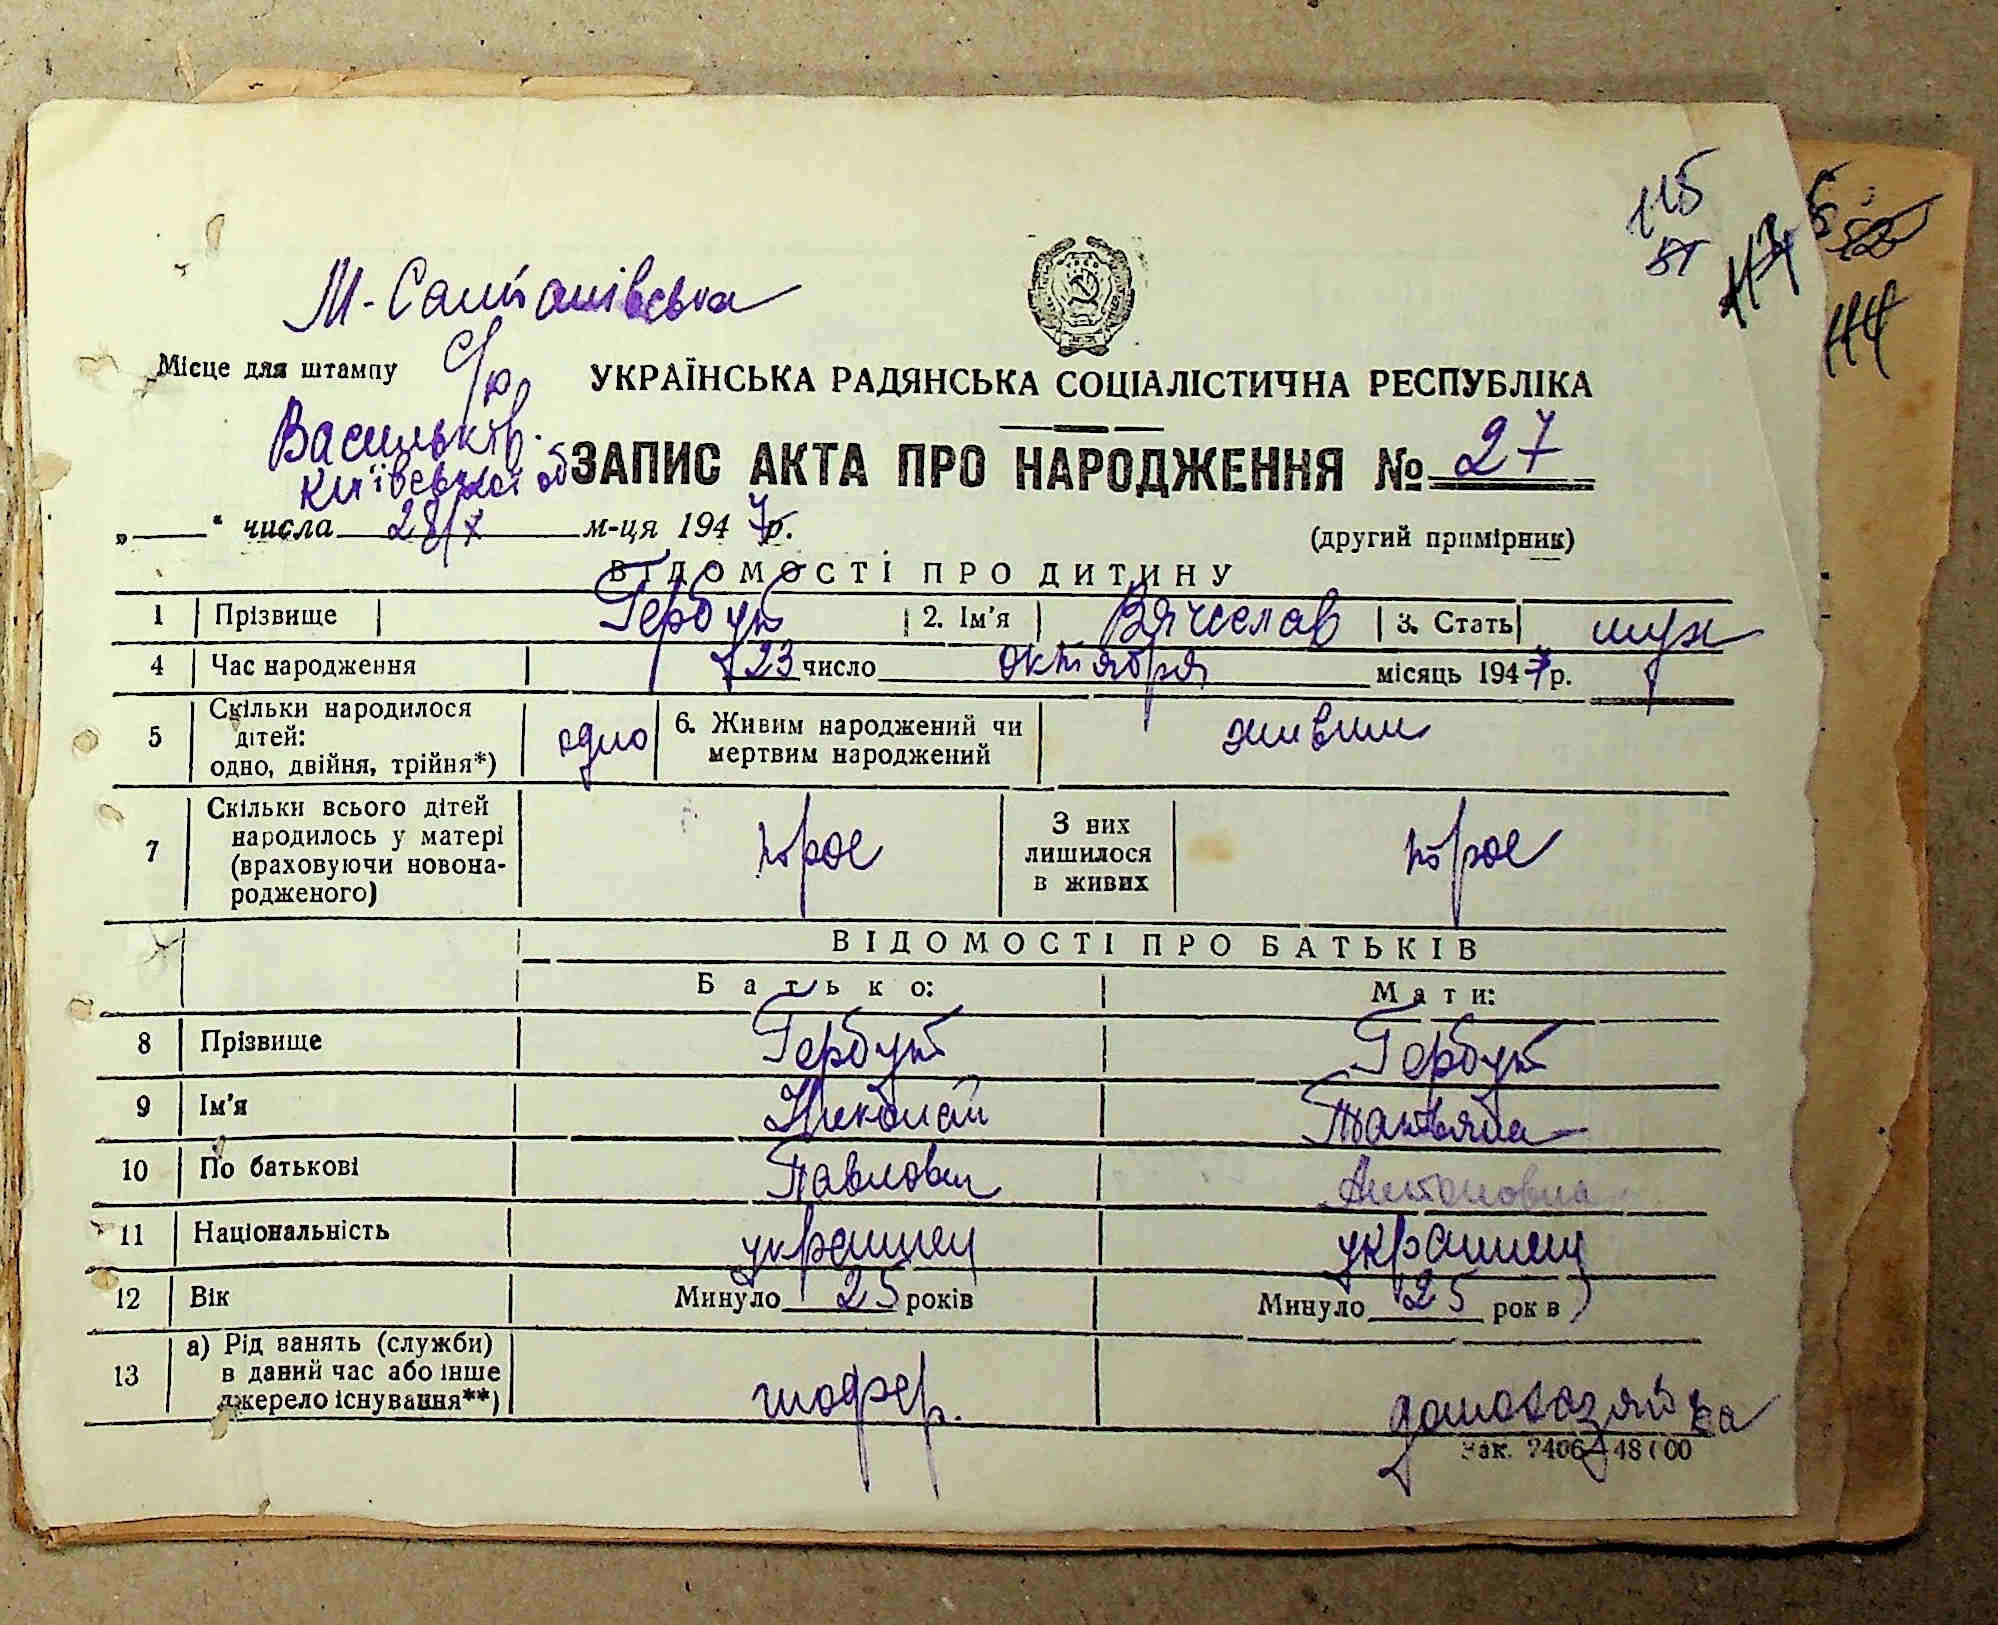 115
51
М-Салтанівська
с/р
Місце для штампу
УКРАЇНСЬКА РАДЯНСЬКА СОЦІАЛІСТИЧНА РЕСПУБЛІКА
Васильків.
Київської об
ЗАПИС АКТА ПРО НАРОДЖЕННЯ № 27
„ “ числа 28/X м-ця 1947 р.
(другий примірник)
ВІДОМОСТІ ПРО ДИТИНУ
1 Прізвище Гербут 2. Ім'я Вячеслав 3. Стать муж
4 Час народження 23 число октября місяць 1947 р.
5 Скільки народилося
дітей:
одно, двійня, трійня*) одно
6. Живим народжений чи
мертвим народжений живим
7 Скільки всього дітей
народилось у матері
(враховуючи новона-
родженого) трое
З них
лишилося
в живих трое
ВІДОМОСТІ ПРО БАТЬКІВ
Батько: Мати:
8 Прізвище Гербут Гербут
9 Ім'я Николай Татьяна
10 По батькові Павлович Антоновна
11 Національність украинец украинец
12 Вік Минуло 25 років Минуло 25 рок в
13 а) Рід занять (служби)
в даний час або інше
джерело існування**) шофер. домохазяйка
Зак. 2406 48100